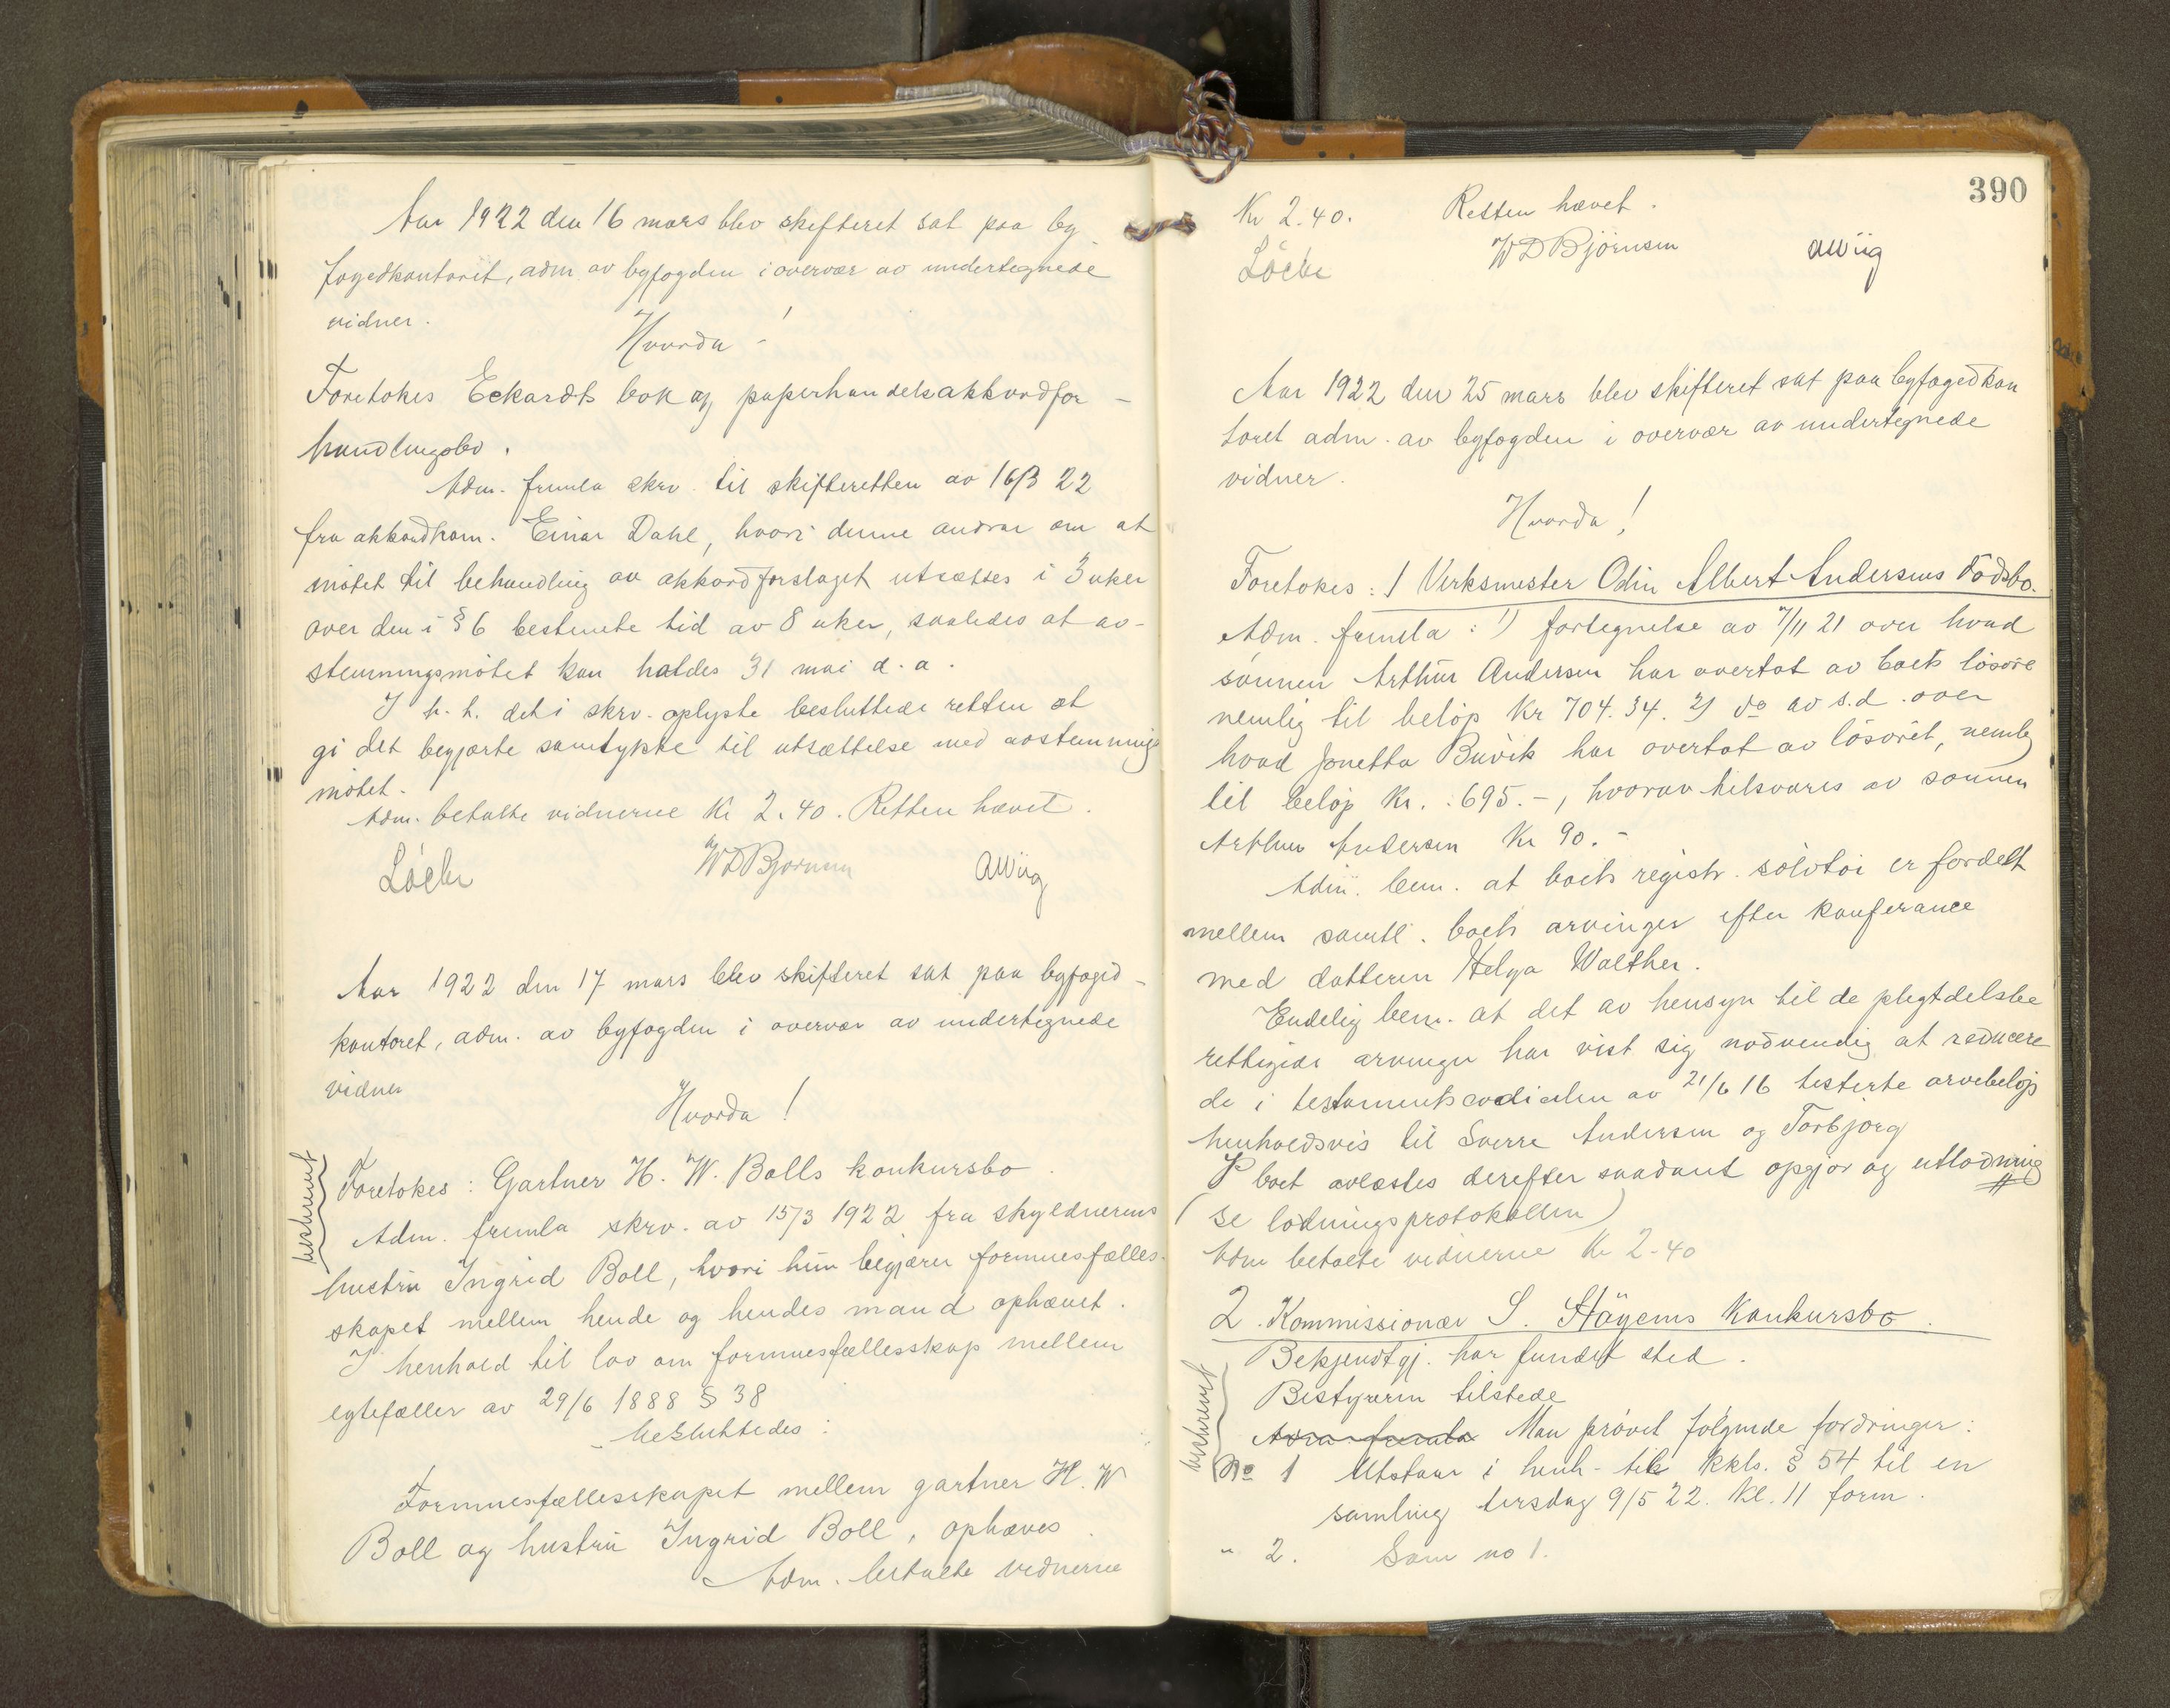 Aar 1922 den 16 mars blev skifteret sat paa by
fogedkontoret, adm. av byfogden i overvær av undertegnede
vidner.
Hvorda!
Foretokes Eckardts bok og papirhandels akkordfor-
handlingsbo.
Adm. fremla skrv. til skifteretten av 16/3 22
fra akkordkom. Einar Dahl, hvori denne andrar om at
mötet til behandling av akkordforslaget utsættes i 3 uker
over den i § 6 bestemte tid av 8 uker, saaledes at av-
stemningsmötet kan holdes 31 mai d. a.
I h. t. det i skrv. oplyste besluttede retten at
gi det begjærte samtykke til utsættelse med avstemnings
mötet.
Adm. betalte vidnerne Kr 2.40. Retten hævet.
Löchr WDBjörnsen AWiig
Aar 1922 den 17 mars blev skifteret sat paa byfoged-
kontoret, adm. av byfogden i overvær av undertegnede
vidner
Hvorda!
beskrevet
Foretokes: Gartner H. W. Bolls konkursbo.
Adm. fremla skrv. av 15/3 1922 fra skyldnerens
hustru Ingrid Boll, hvori hun begjærer formuesfælles-
skapet mellem hende og hendes mand ophævet.
I henhold til lov om formuesfællesskap mellem
egtefæller av 29/6 1888 § 38
besluttedes:
Formuesfællesskapet mellem gartner H. W
Boll og hustru Ingrid Boll, ophæves.
Adm. betalte vidnerne
390
Kr 2.40. Retten hævet.
Löchr WDBjörnsen AWiig
Aar 1922 den 25 mars blev skifteret sat paa byfogedkon
toret adm. av byfogden i overvær av undertegnede
vidner.
Hvorda!
Foretokes: 1 Verksmester Odin Albert Andersens Dödsbo.
Adm. fremla: 1) fortegnelse av 7/11 21 over hvad
sönnen Arthur Andersen har overtat av boets lösöre
nemlig til belöp Kr 704.34. 2) do av s.d. over
hvad Jonetta Buvik har overtat av lösöret, nemlig
til belöp Kr. 695.-, hvorav tilsvares av sönnen
Arthur Andersen Kr 90.-
Adm. bem. at boets registr. sölvtöi er fordelt
mellem samtl. boets arvinger efter konferance
med datteren Helga Walther.
Endelig bem. at det av hensyn til de pligtdelsbe
rettigede arvinger har vist sig nödvendig at reducere
de i testamentscodicilen av 21/6 16 testerte arvebelöp
henholdsvis til Sverre Andersen og Torbjörg
I boet avlæstes derefter saadant opgjör og utlodning
(se lodningsprotokollen)
Adm betalte vidnerne Kr 2-40
2. Kommissionær S. Höyems Konkursbo.
Bekjendtgj. har fundet sted.
Bestyreren tilstede
beskrevet
Adm. fremla Man prövet fölgende fordringer:
No 1 Utstaar i henh. til kkls. § 54 til en
samling tirsdag 9/5 22. Kl. 11 form.
" 2. Som no 1.